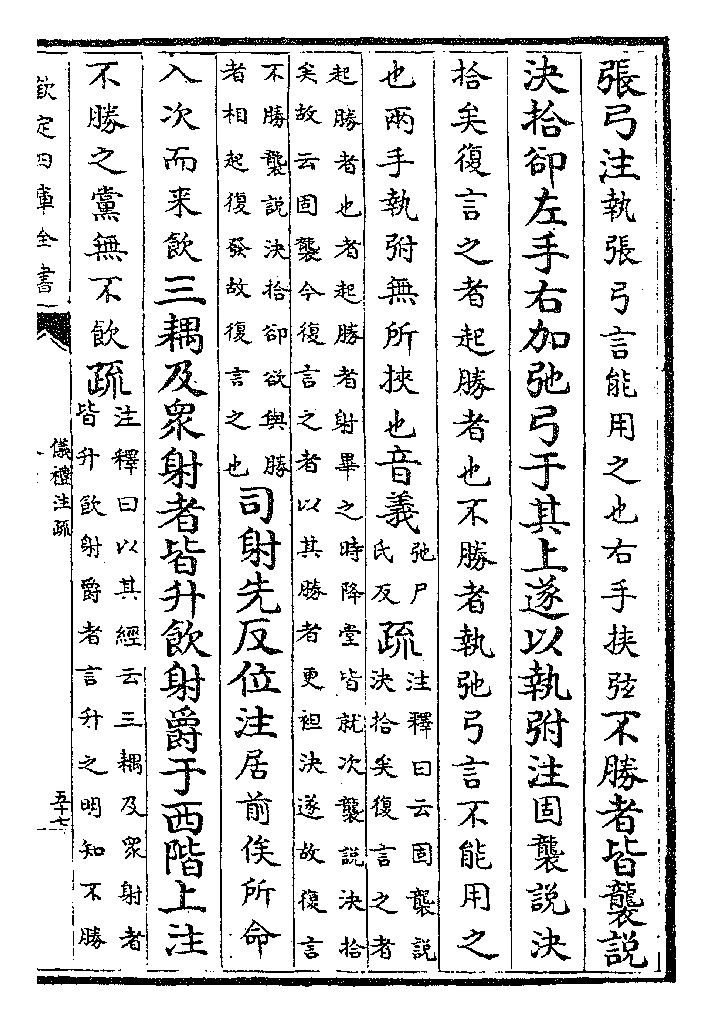 張弓注執張弓言能用之也右手挟弦不勝者皆襲説
決拾卻左手右加弛弓于其上遂以執弣注固襲説決
拾矣復言之者起勝者也不勝者執弛弓言不能用之
也兩手執弣無所挾也音義
弛尸
氏反
疏
注釋曰云固襲説
決拾矣復言之者
起勝者也者起勝者射畢之時降堂皆就次襲説決拾
矣故云固襲今復言之者以其勝者更袒決遂故復言
不勝襲説決拾卻欲與勝
者相起復發故復言之也
司射先反位注居前俟所命
入次而来飲三耦及眾射者皆升飲射爵于西階上注
不勝之黨無不飲疏
注釋曰以其經云三耦及眾射者
皆升飲射爵者言升之明知不勝
欽定四庫全書
儀禮注疏
五十七